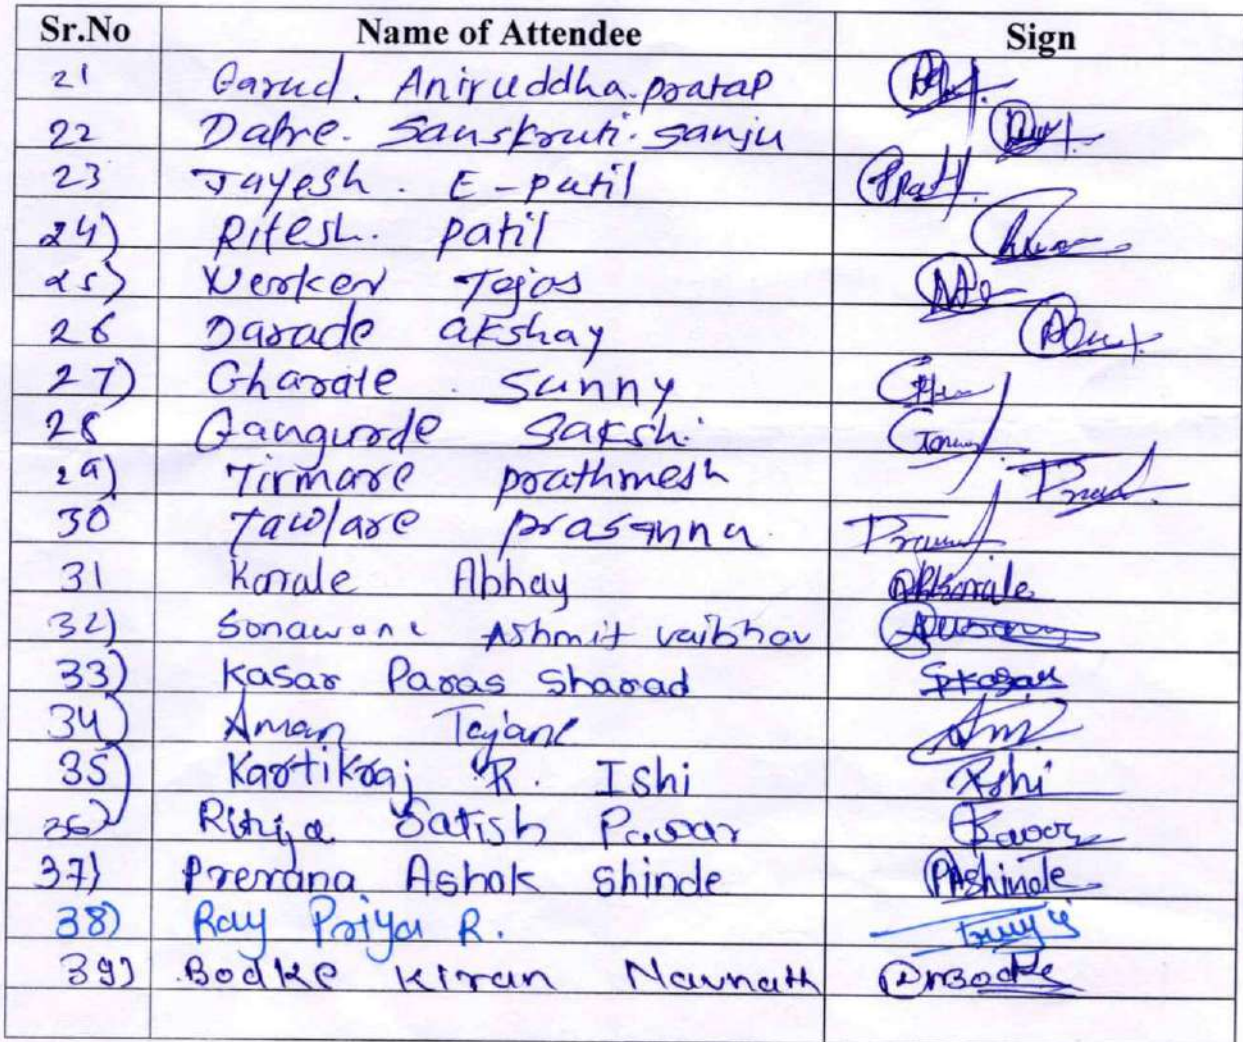 Sr.No Name of Attendee Sign
21 Garud. Aniruddha.pratap
22 Dafre. Sanskruti. Sanju
23 Jayesh. E-patil Patil
24) Ritesh. patil
25) Nerker Tejas
26 Darade akshay
27) Gharate Sunny
28 Gangurde Sakshi
29) Tirmare prathmesh
30 Tawlare prasanna
31 Korale Abhay AbKorale
32) Sonawane Ashmit vaibhav
33) Kasar Paras Sharad Spkasar
34) Aman Tejane
35) Kartikraj R. Ishi Ishi
36) Satish Pawar
37) Prerana Ashok Shinde PAshinde
38) Ray Priya R.
39) Bodke Kiran Navnath Bodke